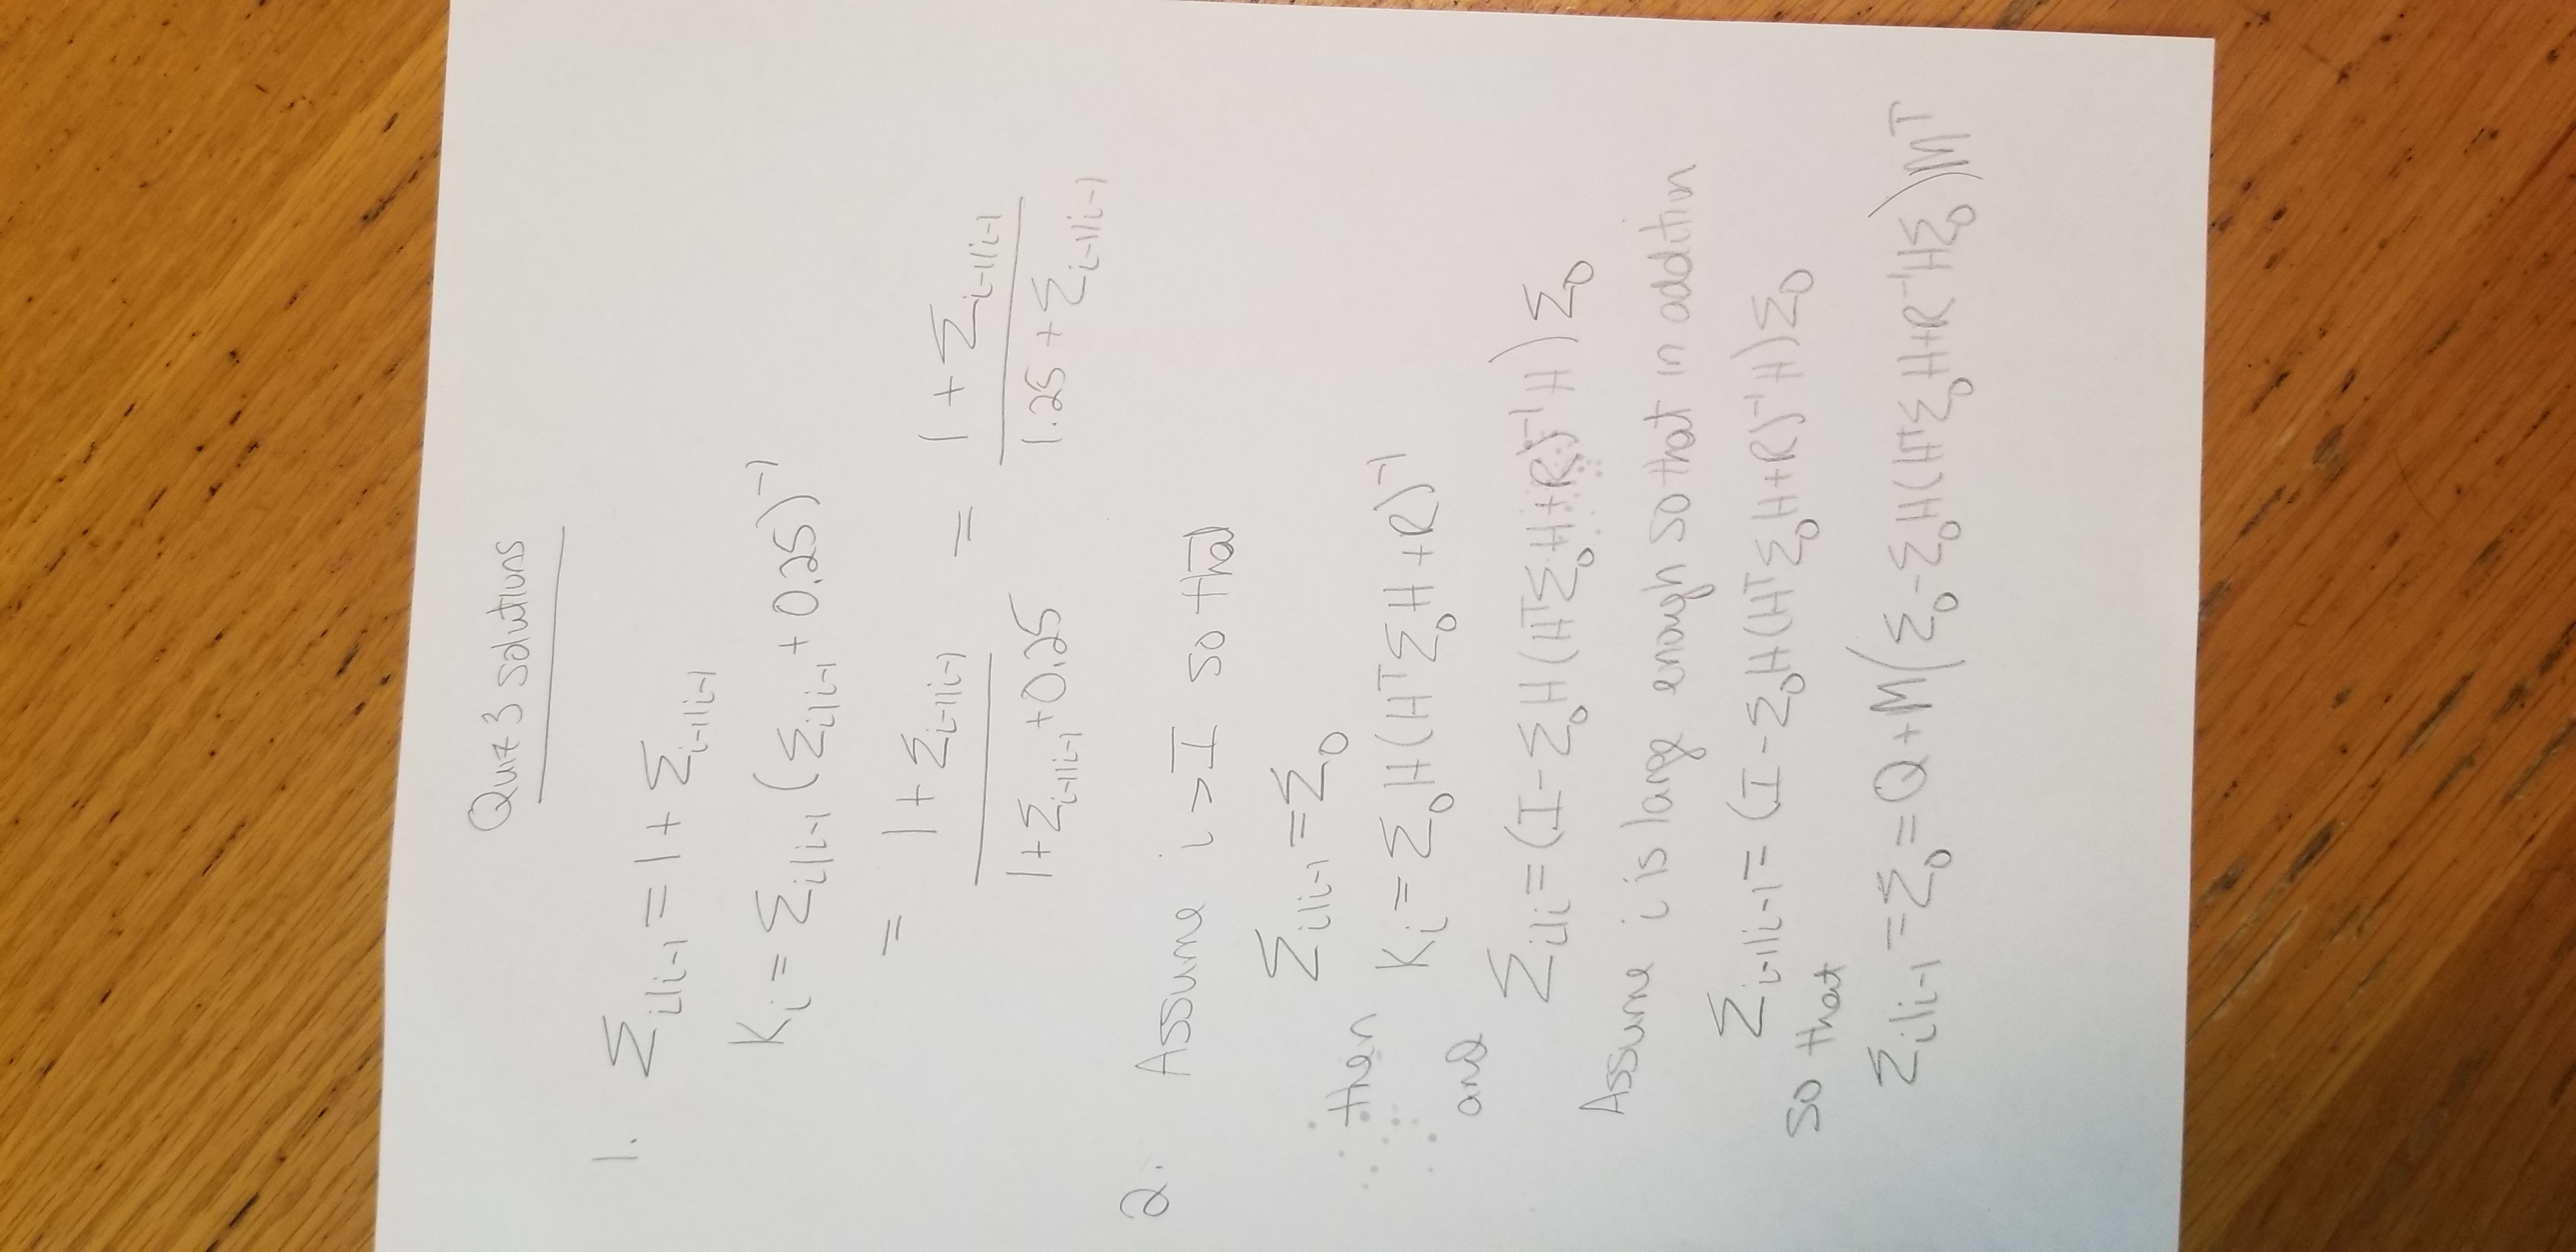 Quiz 3 solutions
1. Σ_{i|i-1} = 1 + Σ_{i-1|i-1}
K_i = Σ_{i|i-1} (Σ_{i|i-1} + 0.25)^{-1}
= \frac{1 + Σ_{i-1|i-1}}{1 + Σ_{i-1|i-1} + 0.25} = \frac{1 + Σ_{i-1|i-1}}{1.25 + Σ_{i-1|i-1}}
2. Assume i > I so that
Σ_{i|i-1} = Σ_0
then
K_i = Σ_0 H (H^T Σ_0 H + R)^{-1}
and
Σ_{i|i} = (I - Σ_0 H (H^T Σ_0 H + R)^{-1} H) Σ_0
Assume i is large enough so that in addition
Σ_{i-1|i-1} = (I - Σ_0 H (H^T Σ_0 H + R)^{-1} H) Σ_0
so that
Σ_{i|i-1} = Σ_0 = Q + M (Σ_0 - Σ_0 H (H^T Σ_0 H + R^{-1} H Σ_0) M^T